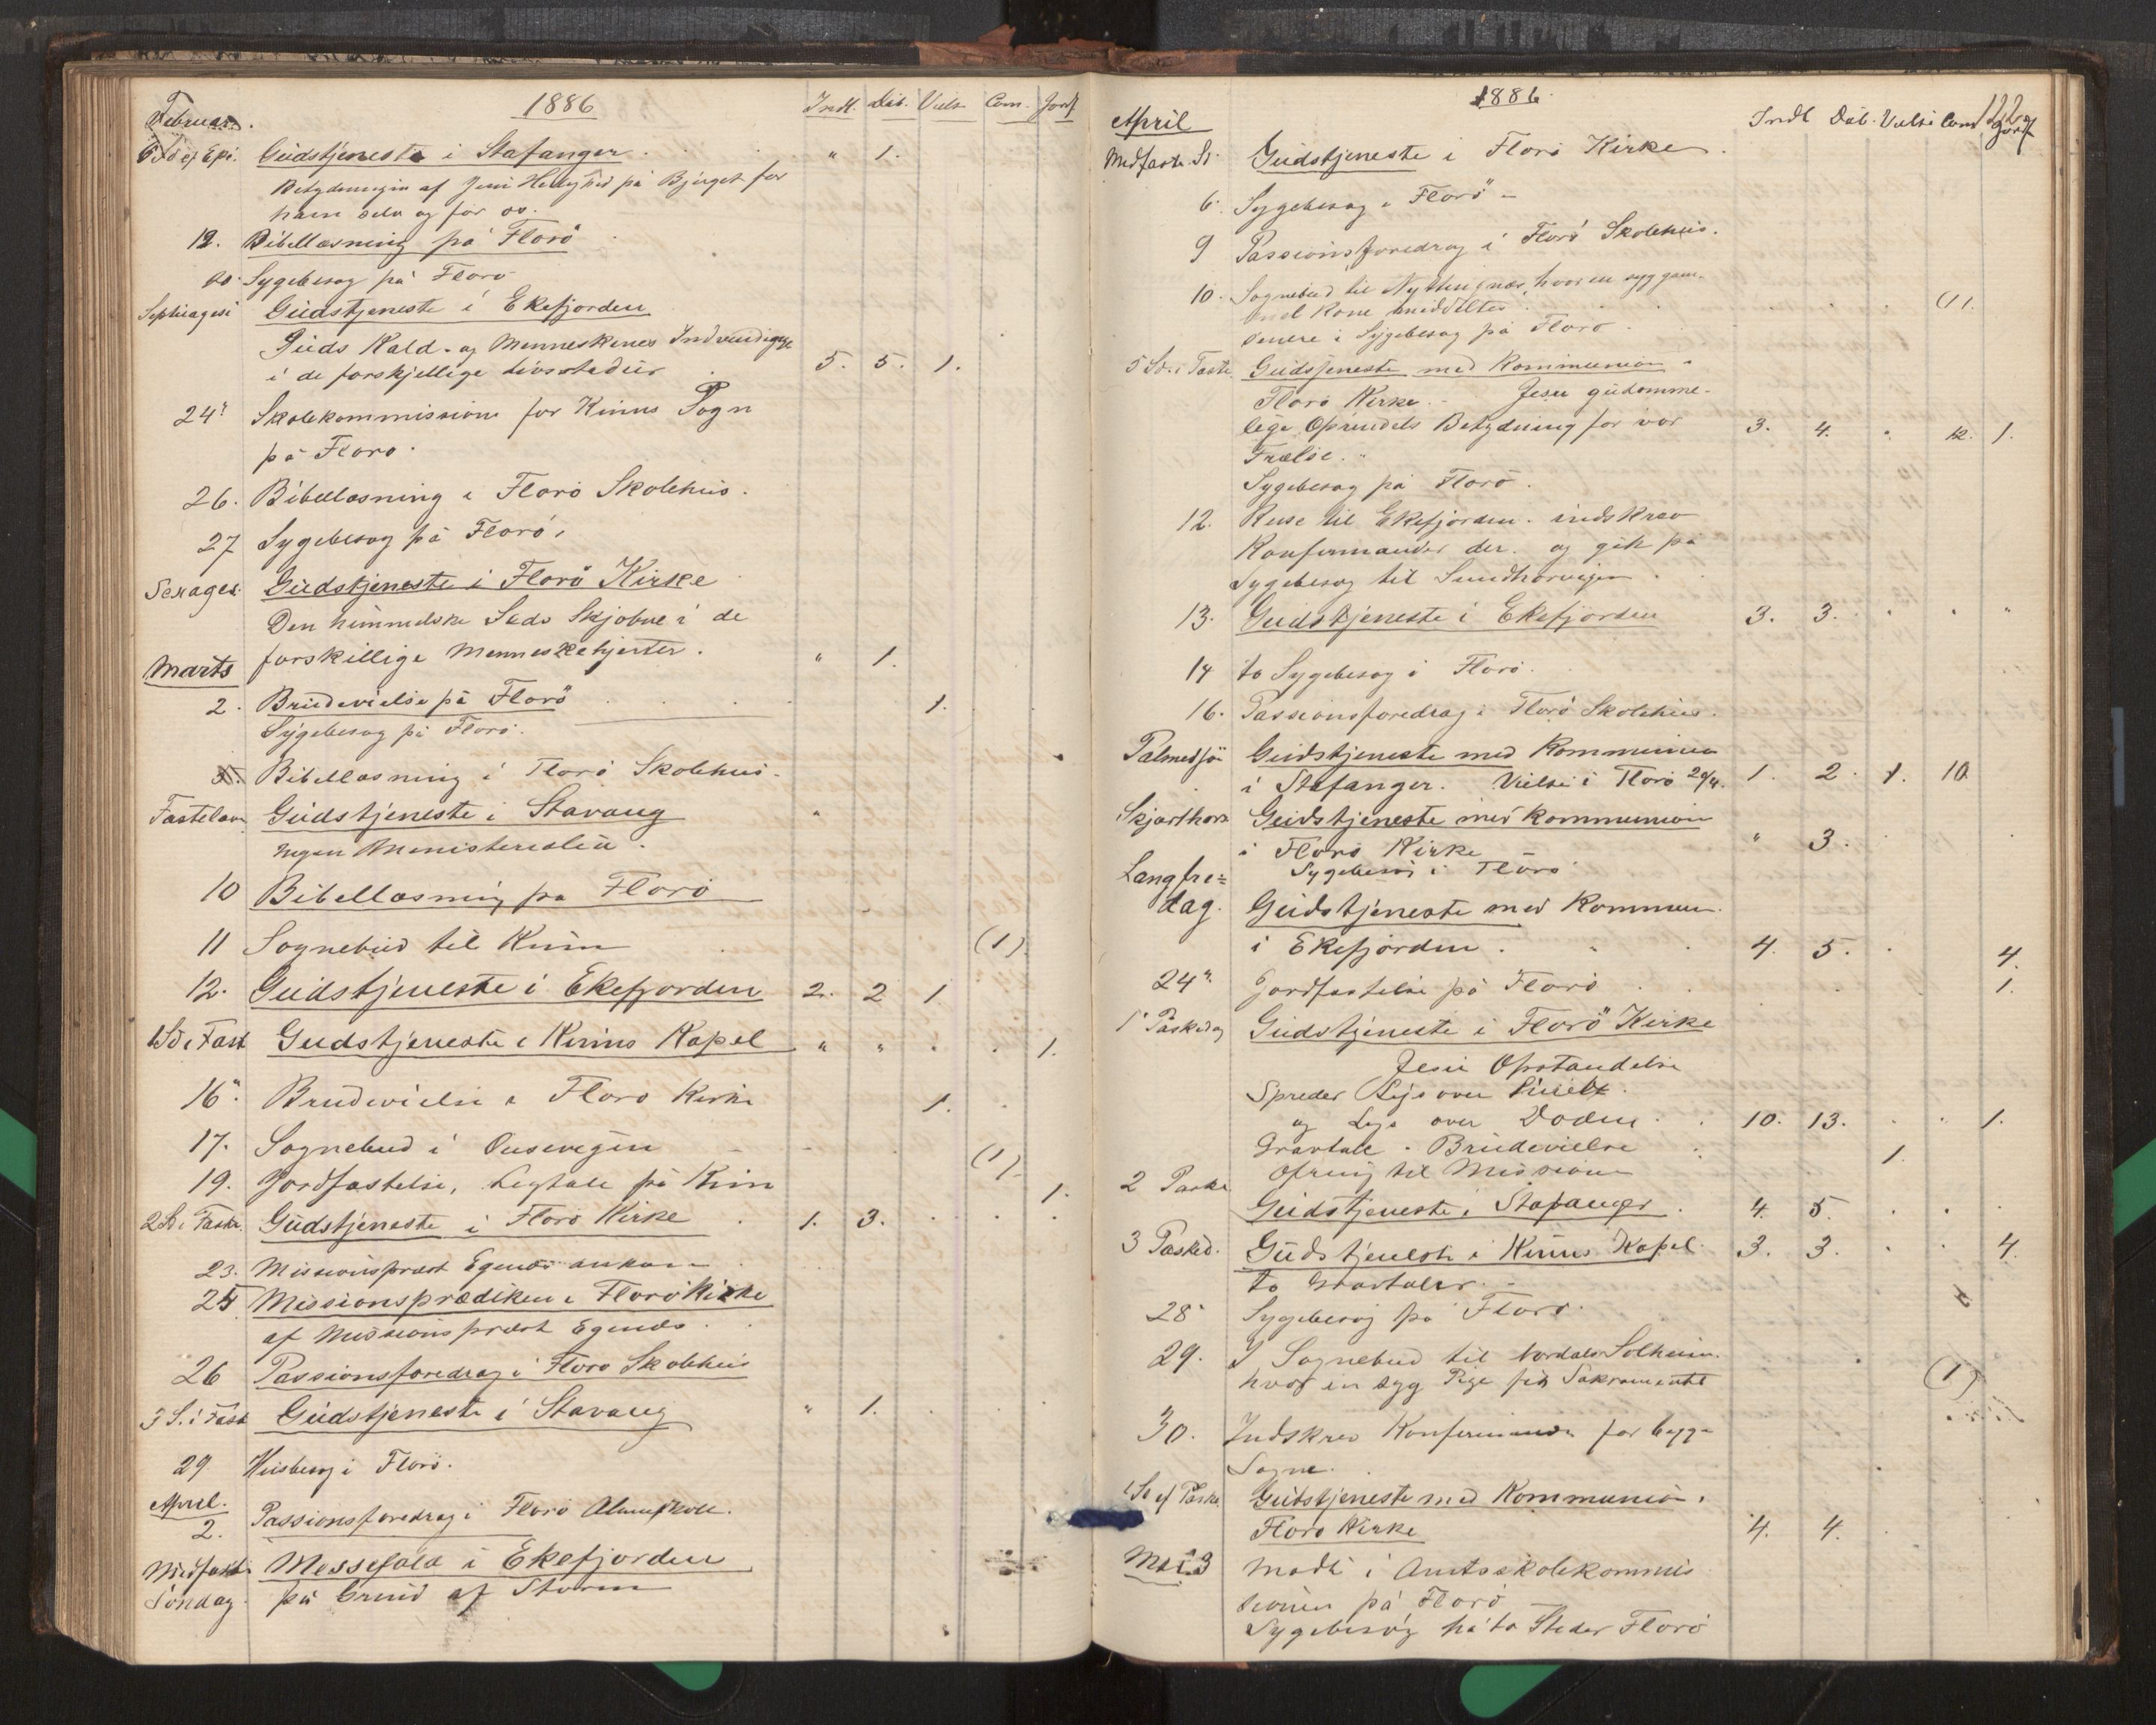 1886
Februar. Indl. Dåb. Viels. Com. Jordf
6 Sd ef Epi. Gudstjeneste i Stafanger . " 1.
Betydningen af Jesu Herlighed på Bjerget for
ham selv og for os.
12. Bibellæsning på Florö
20. Sygebesøg på Florö
Septuages Gudstjeneste i Ekefjorden
Guds Kald og Menneskenes
i de forskjellige Livsstadier 5. 5. 1.
24de Skolekommission for Kinns Sogn
på Florö.
26. Bibellæsning i Florö Skolehus.
27 Sygebesøg på Florö.
Sexages. Gudstjeneste i Florö Kirke
Den himmelske Sæds Skjæbne i de
forskillige Menneskehjerter. " 1.
Marts
2. Brudevielse på Florö 1.
Sygebesøg på Florö.
Bibellæsning i Florö Skolehus.
Fastelavn Gudstjeneste i Stavang "
Ingen Ministerialia.
10 Bibellæsning på Florö
11 Sognebud til Kinn (1)
12. Gudstjeneste i Ekefjorden 2. 2 1
1 Sd i Fast Gudstjeneste i Kinns Kapel " " . . 1.
16de Brudevielse i Florö Kirke 1.
17. Sognebud i (1)
19. Jordfæstelse, Ligtale på Kinn 1.
2 Sd i Faste. Gudstjeneste i Florö Kirke 1. 3.
23. Missionsprest Egenæs ankom
25 Missionsprædiken i Florö Kirke
af Missionsprest Egenæs.
26 Passionsforedrag i Florö Skolehus
3 S. i Fast Gudstjeneste i Stavang " 1.
29 Husbesøg i Florö.
April.
2. Passionsforedrag i Florö Almuskole.
Midfaste Messefald i Ekefjorden
Söndag på Grund af Storm
1886. 122
April Indl Dåb. Vielse Com Jordf
Midfaste Sd. Gudstjeneste i Florö Kirke
6. Sygebesøg i Florö
9 Passionsforedrag i Florö Skolehus.
10. Sognebud til Nyttingnæs, hvor en syg gam-
mel Kone meddeltes (1).
senere i Sygebesøg på Florö
5 Sd. i Faste Gudstjeneste med Kommunion
Florö Kirke. Jesu guddomme-
lige Oprindels Betydning for vor
Frelse. 3. 4. . 12. 1.
Sygebesøg på Florö.
12. Reise til Ekefjorden. indskrev
Konfirmander der. og gik på
Sygebesøg til
13. Gudstjeneste i Ekefjorden 3. 3.
14 to Sygebesøg i Florö.
16. Passionsforedrag i Florö Skolehus.
Gudstjeneste med Kommunion
i Stafanger. Vielse i Florö 20/4. 1. 2. 1. 10
Skjærthors Gudstjeneste med Kommunion
i Florö Kirke " 3.
Sygebesøg i Florö
Langfre=
dag. Gudstjeneste med Kommun.
i Ekefjorden. 4. 5. 4.
24de Jordfæstelse på Florö 1.
1 Påskedag Gudstjeneste i Florö Kirke
Jesu Opstandelse
Spreder Lys over Livet
og Lys over Döden. 10. 13. 1.
Gravtale. Brudevielse 1.
Ofring til Missionen
2 Påske Gudstjeneste i Stafanger. 4. 5.
3 Påsked. Gudstjeneste i Kinns Kapel. 3. 3. 4.
to Gravtaler.
28 Sygebesøg på Florö.
29. I Sognebud til Nordalens Solheim.
hvor en syg Pige fik Sakramentet (1)
30. Indskrev Konfirmander for begge
Sogne.
1 Sd ef Påske Gudstjeneste med Kommunion i
Florö Kirke 4. 4
Mai 3 Mödte i Amtsskolekommis
sionen på Florö
Sygebesøg på to Steder Florö